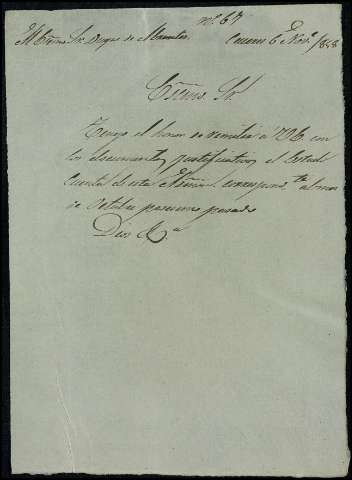 nº 67
Al Exmo. Sr. Duque de
6 de Nov.e /858
Exmo. Sr.
Tengo el honor de remitir á V.E. con
los documentos justificativos el Estado
Cuenta de esta correspond.te al mes
de Octubre proximo pasado
Dios &a